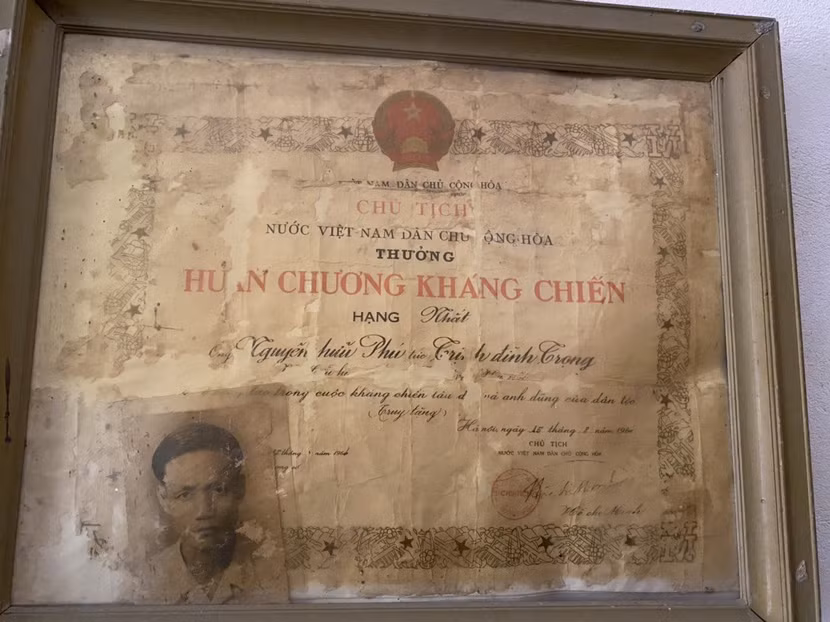 NAM DÂN CHỦ CỘNG HÒA
CHỦ TỊCH
NƯỚC VIỆT-NAM DÂN CHỦ ỘNG-HÒA
THƯỞNG
HUÂN CHƯƠNG KHÁNG CHIẾN
HẠNG Nhất
Ông Nguyễn hữu Phú tức Trịnh đình Trọng
trong cuộc kháng chiến lâu d và anh dũng của dân tộc
(Truy tặng)
Hà nội, ngày 15 tháng năm
CHỦ TỊCH
NƯỚC VIỆT NAM DÂN CHỦ CỘNG HÒA
Hồ chí Minh